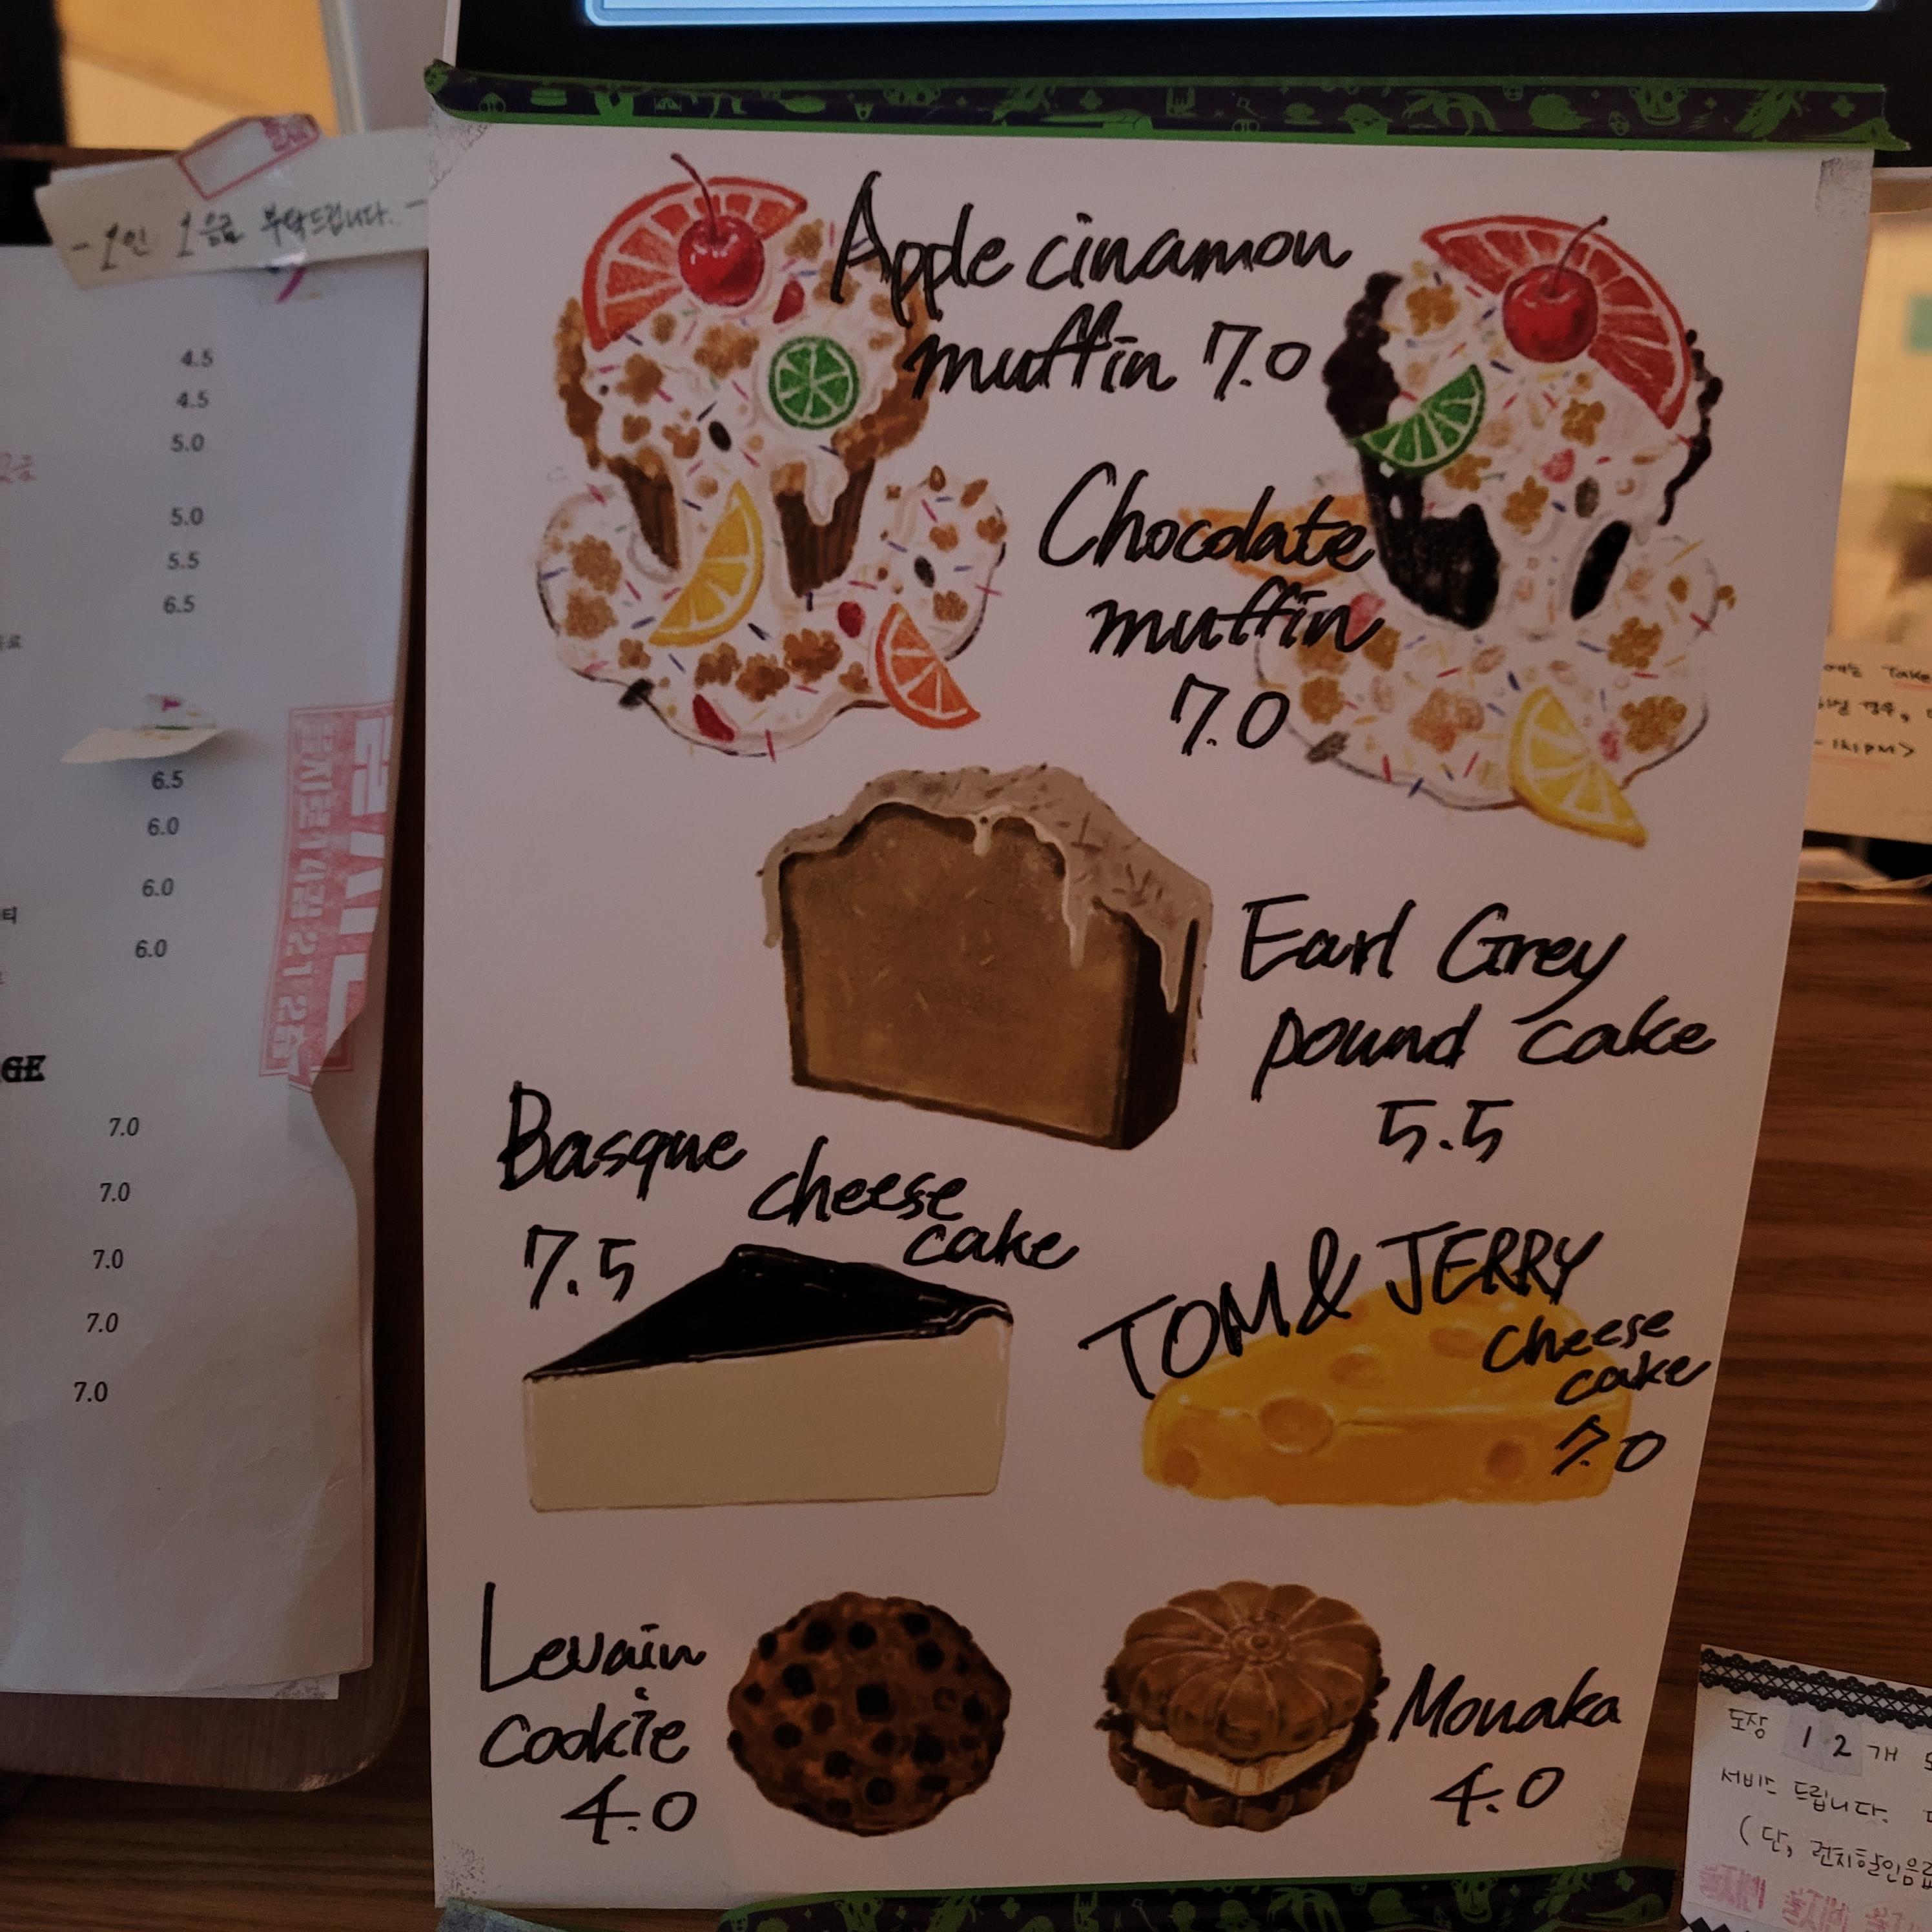 -1인 1음료 부탁드립니다.-
4.5
4.5
5.0
5.0
5.5
6.5
6.5
6.0
6.0
티
6.0
GE
7.0
7.0
7.0
7.0
7.0
Apple cinamon
muffin 7.0
Chocolate
muffin
7.0
Earl Grey
pound cake
5.5
Basque cheese
cake
7.5
TOM & JERRY
cheese
cake
7.0
Levain
cookie
4.0
Monaka
4.0
에는 Take
경우,
도장 12개
서비스 드립니다.
(단, 런치할인음료